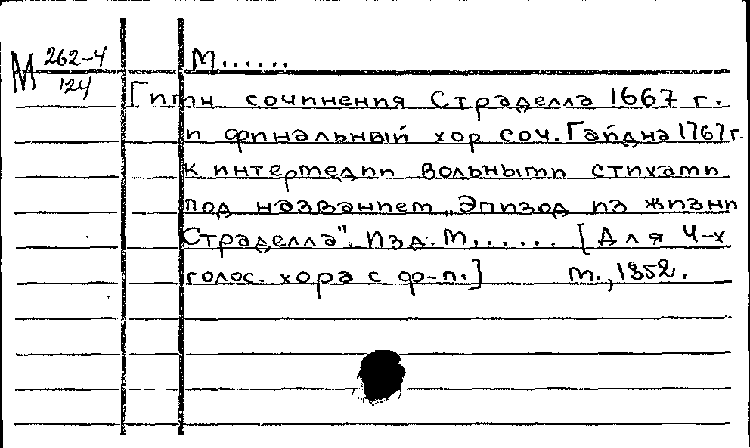 М 262-4
124
М......
Гимн сочинения Страделла 1667 г.
и финальный хор соч. Гайдна 1767 г.
к интермедии вольными стихами
под названием „Эпизод из жизни
Страделла". Изд. М....... [Для 4-х
голос. хора с ф-п.] М., 1852.